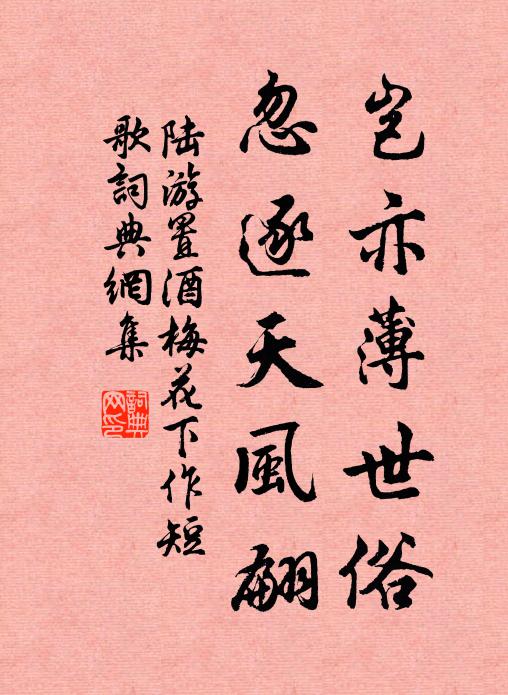 豈亦薄世俗
忽逐天風翩
陸游置酒梅花下作短
歌詞典網集
詞典
网印